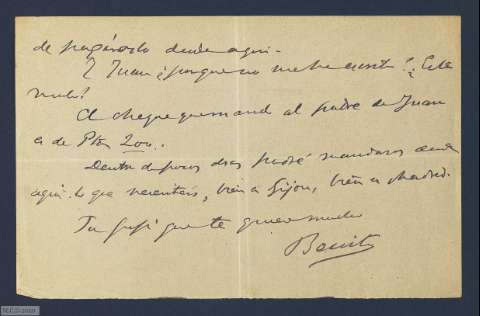 de pagároslo desde aquí.
Y Juan ¿porque no me ha escrito? ¿Está
malo?
El cheque que mandé al padre de Juan
es de Ptas 200.
Dentro de pocos dias podré mandaros desde
aquí lo que necesitéis, bien a Gijon, bien a Madrid.
Tu que te quiere mucho
Benito